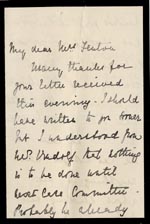 My dear Mrs Fenton
Many thanks for
your letter received
this evening. I should
have written to you sooner
but I understood from
Mr. that nothing
is to be done until
next Care Committee.
Probably he already